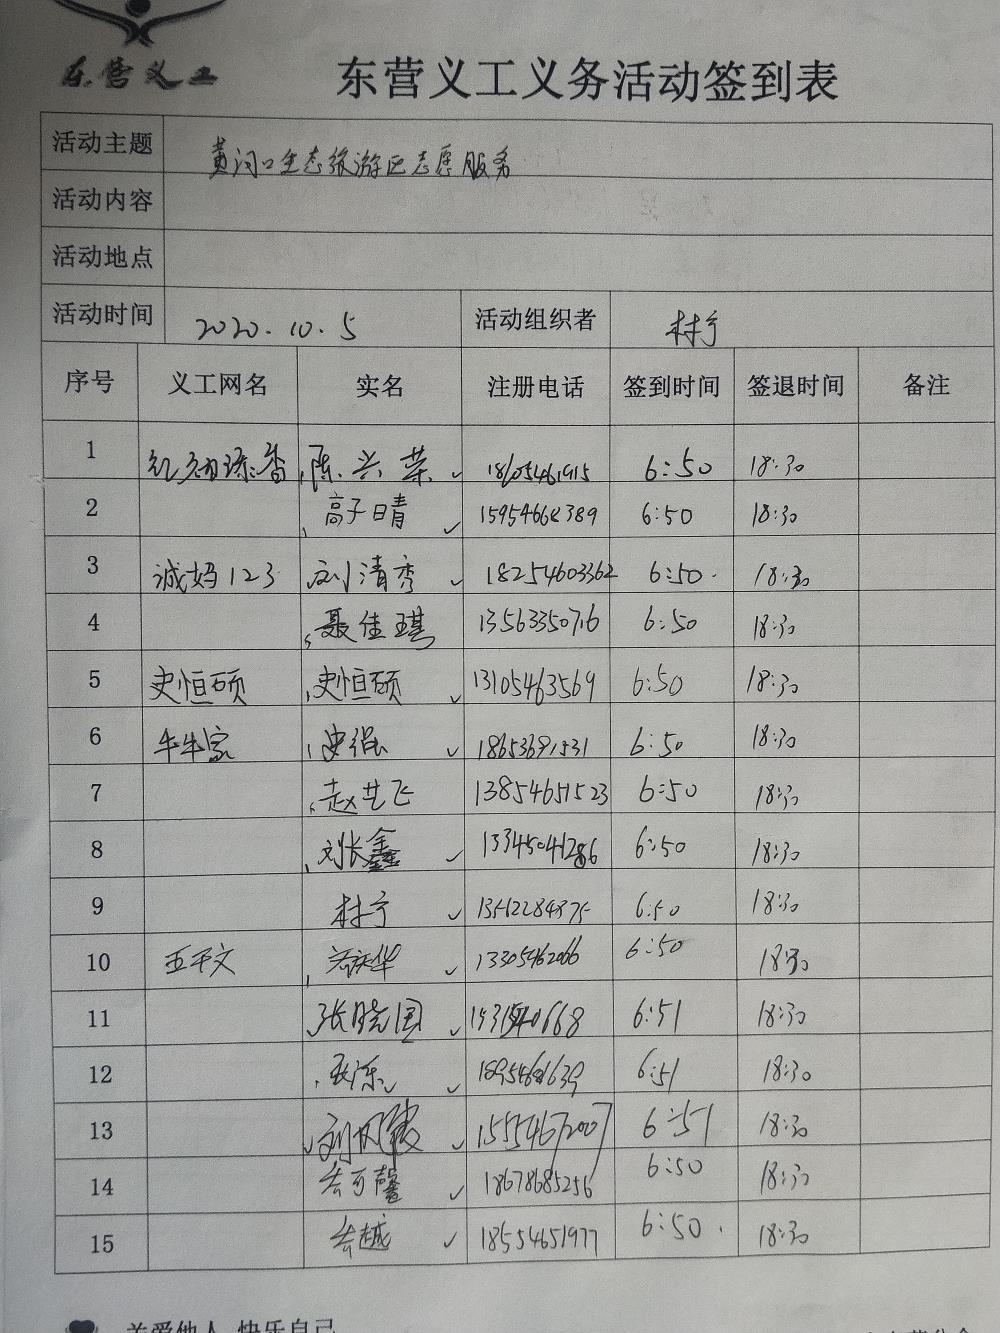 东营义工
东营义工义务活动签到表
活动主题 黄河口生态旅游区志愿服务
活动内容
活动地点
活动时间 2020.10.5 活动组织者 林宁
序号 义工网名 实名 注册电话 签到时间 签退时间 备注
1 陈兴荣 18605461915 6:50 18:30
2 高子晴 15954668389 6:50 18:30
3 诚妈123 刘清秀 18254603362 6:50 18:30
4 聂佳琪 13563350716 6:50 18:30
5 史恒硕 史恒硕 13105463569 6:50 18:30
6 牛牛家 史强 18653691531 6:50 18:30
7 赵艺飞 13854651523 6:50 18:30
8 刘长鑫 13345041286 6:50 18:30
9 林宁 13512284875 6:50 18:30
10 五千文 13305462066 6:50 18:30
11 张晓国 6:51 18:30
12 6:51 18:30
13 刘凤霞 15554672007 6:51 18:30
14 18678685256 6:50 18:30
15 18554651977 6:50 18:30
关爱他人 快乐自己